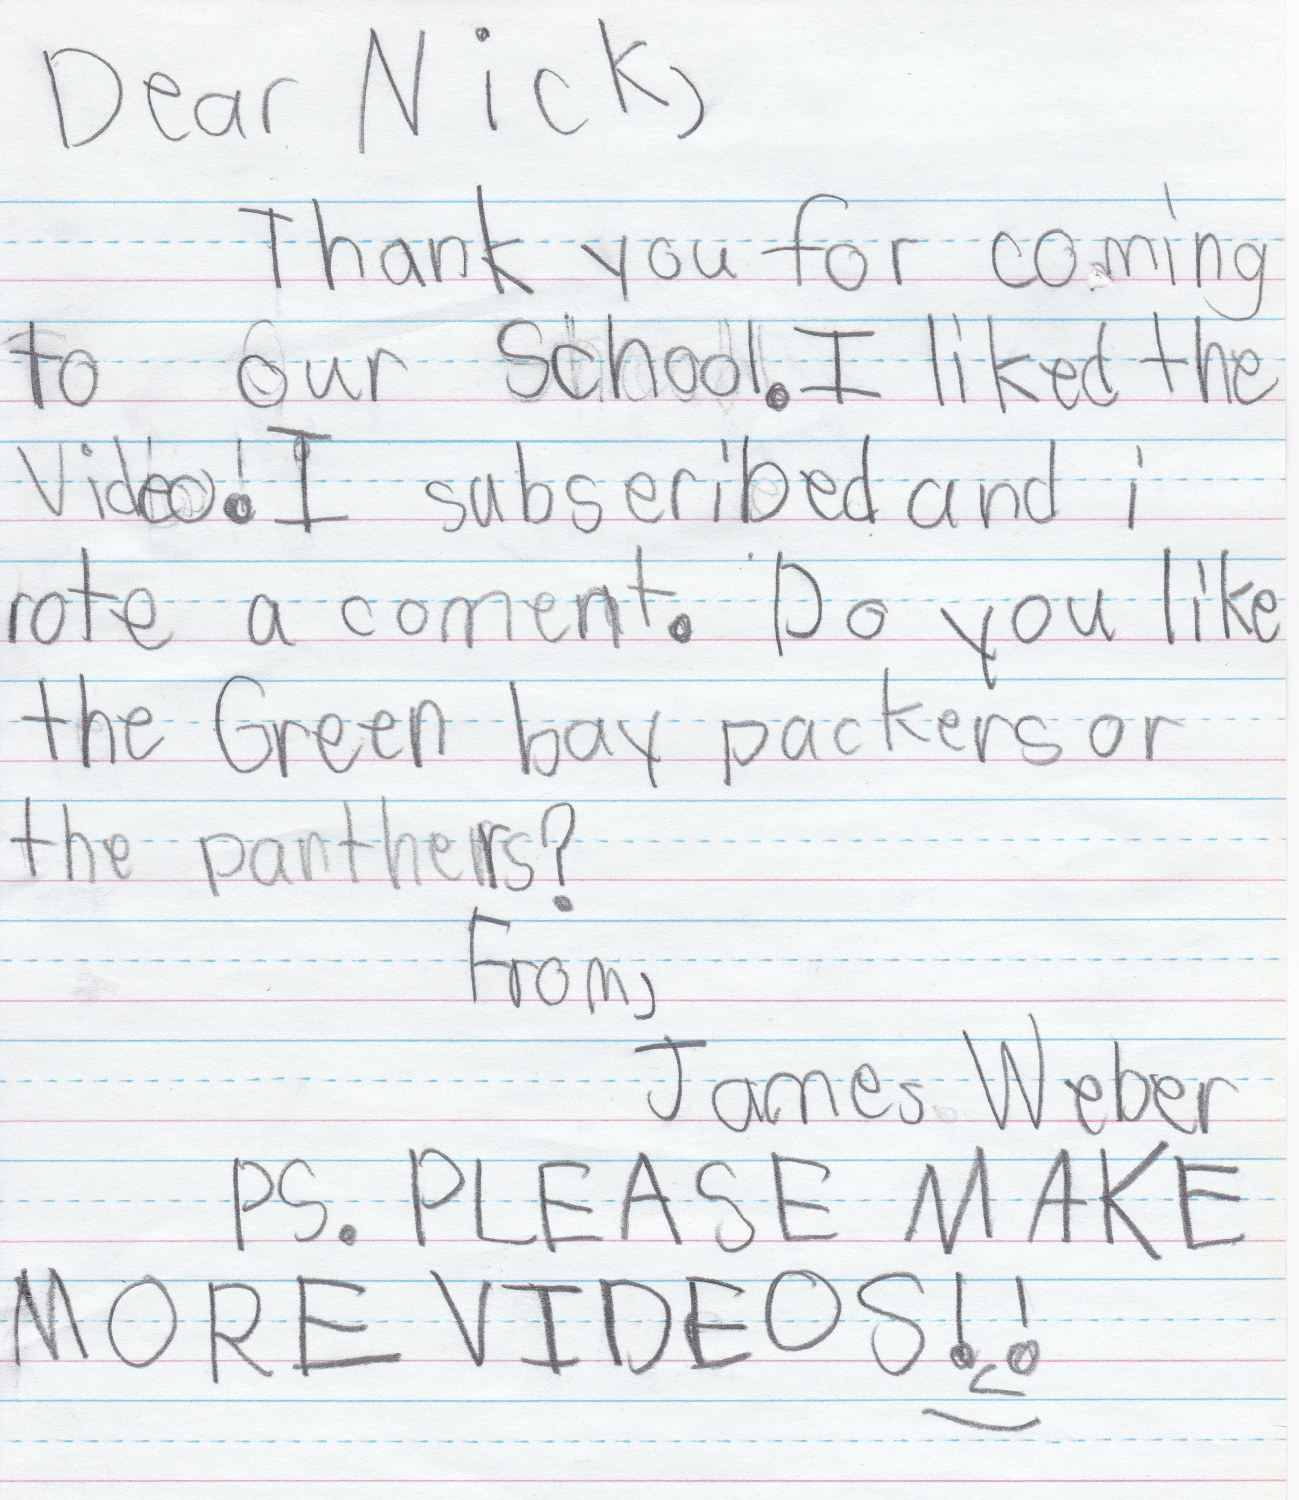 Dear Nick,
Thank you for coming
to our School. I liked the
Video. I subscribed and i
rote a coment. Do you like
the Green bay packers or
the panthers?
From,
James Weber
PS. PLEASE MAKE
MORE VIDEOS!!